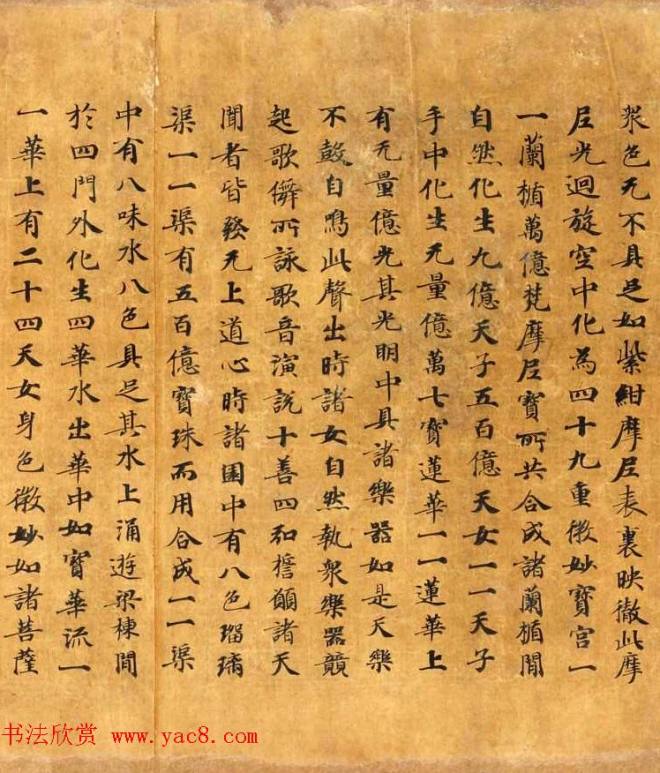 衆色无不具足如紫紺摩尼表裏映徹此摩
尼光迴旋空中化為四十九重微妙寳宮一
一蘭楯萬億梵摩尼寳所共合成諸蘭楯間
自然化生九億天子五百億天女一一天子
手中化生无量億萬七寳蓮華一一蓮華上
有无量億光其光明中具諸樂器如是天樂
不皷自鳴此聲出時諸女自然執衆樂器競
起歌儛所詠歌音演說十善四和擔願諸天
聞者皆發无上道心時諸園中有八色瑠璃
渠一一渠有五百億寳珠而用合成一一渠
中有八味水八色具足其水上涌遊梁棟間
於四門外化生四華水出華中如寳華流一
一華上有二十四天女身色微妙如諸菩薩
书法欣赏 www.yac8.com